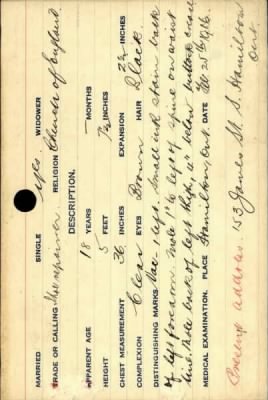 MARRIED SINGLE yes WIDOWER
TRADE OR CALLING RELIGION Church of England
DESCRIPTION.
APPARENT AGE 18 YEARS MONTHS
HEIGHT 5 FEET 7½ INCHES
CHEST MEASUREMENT 36 INCHES EXPANSION 2½ INCHES
COMPLEXION Clear EYES Brown HAIR Black
DISTINGUISHING MARKS Vac. 1 left. Small ink stain back
of left forearm. Mole 1" to left of spine on waist
line. Mole back of left thigh, 4" below buttock crease
MEDICAL EXAMINATION. PLACE Hamilton, Ont. DATE 25th 1916.
Present address. 153 James St. S. Hamilton
Ont.